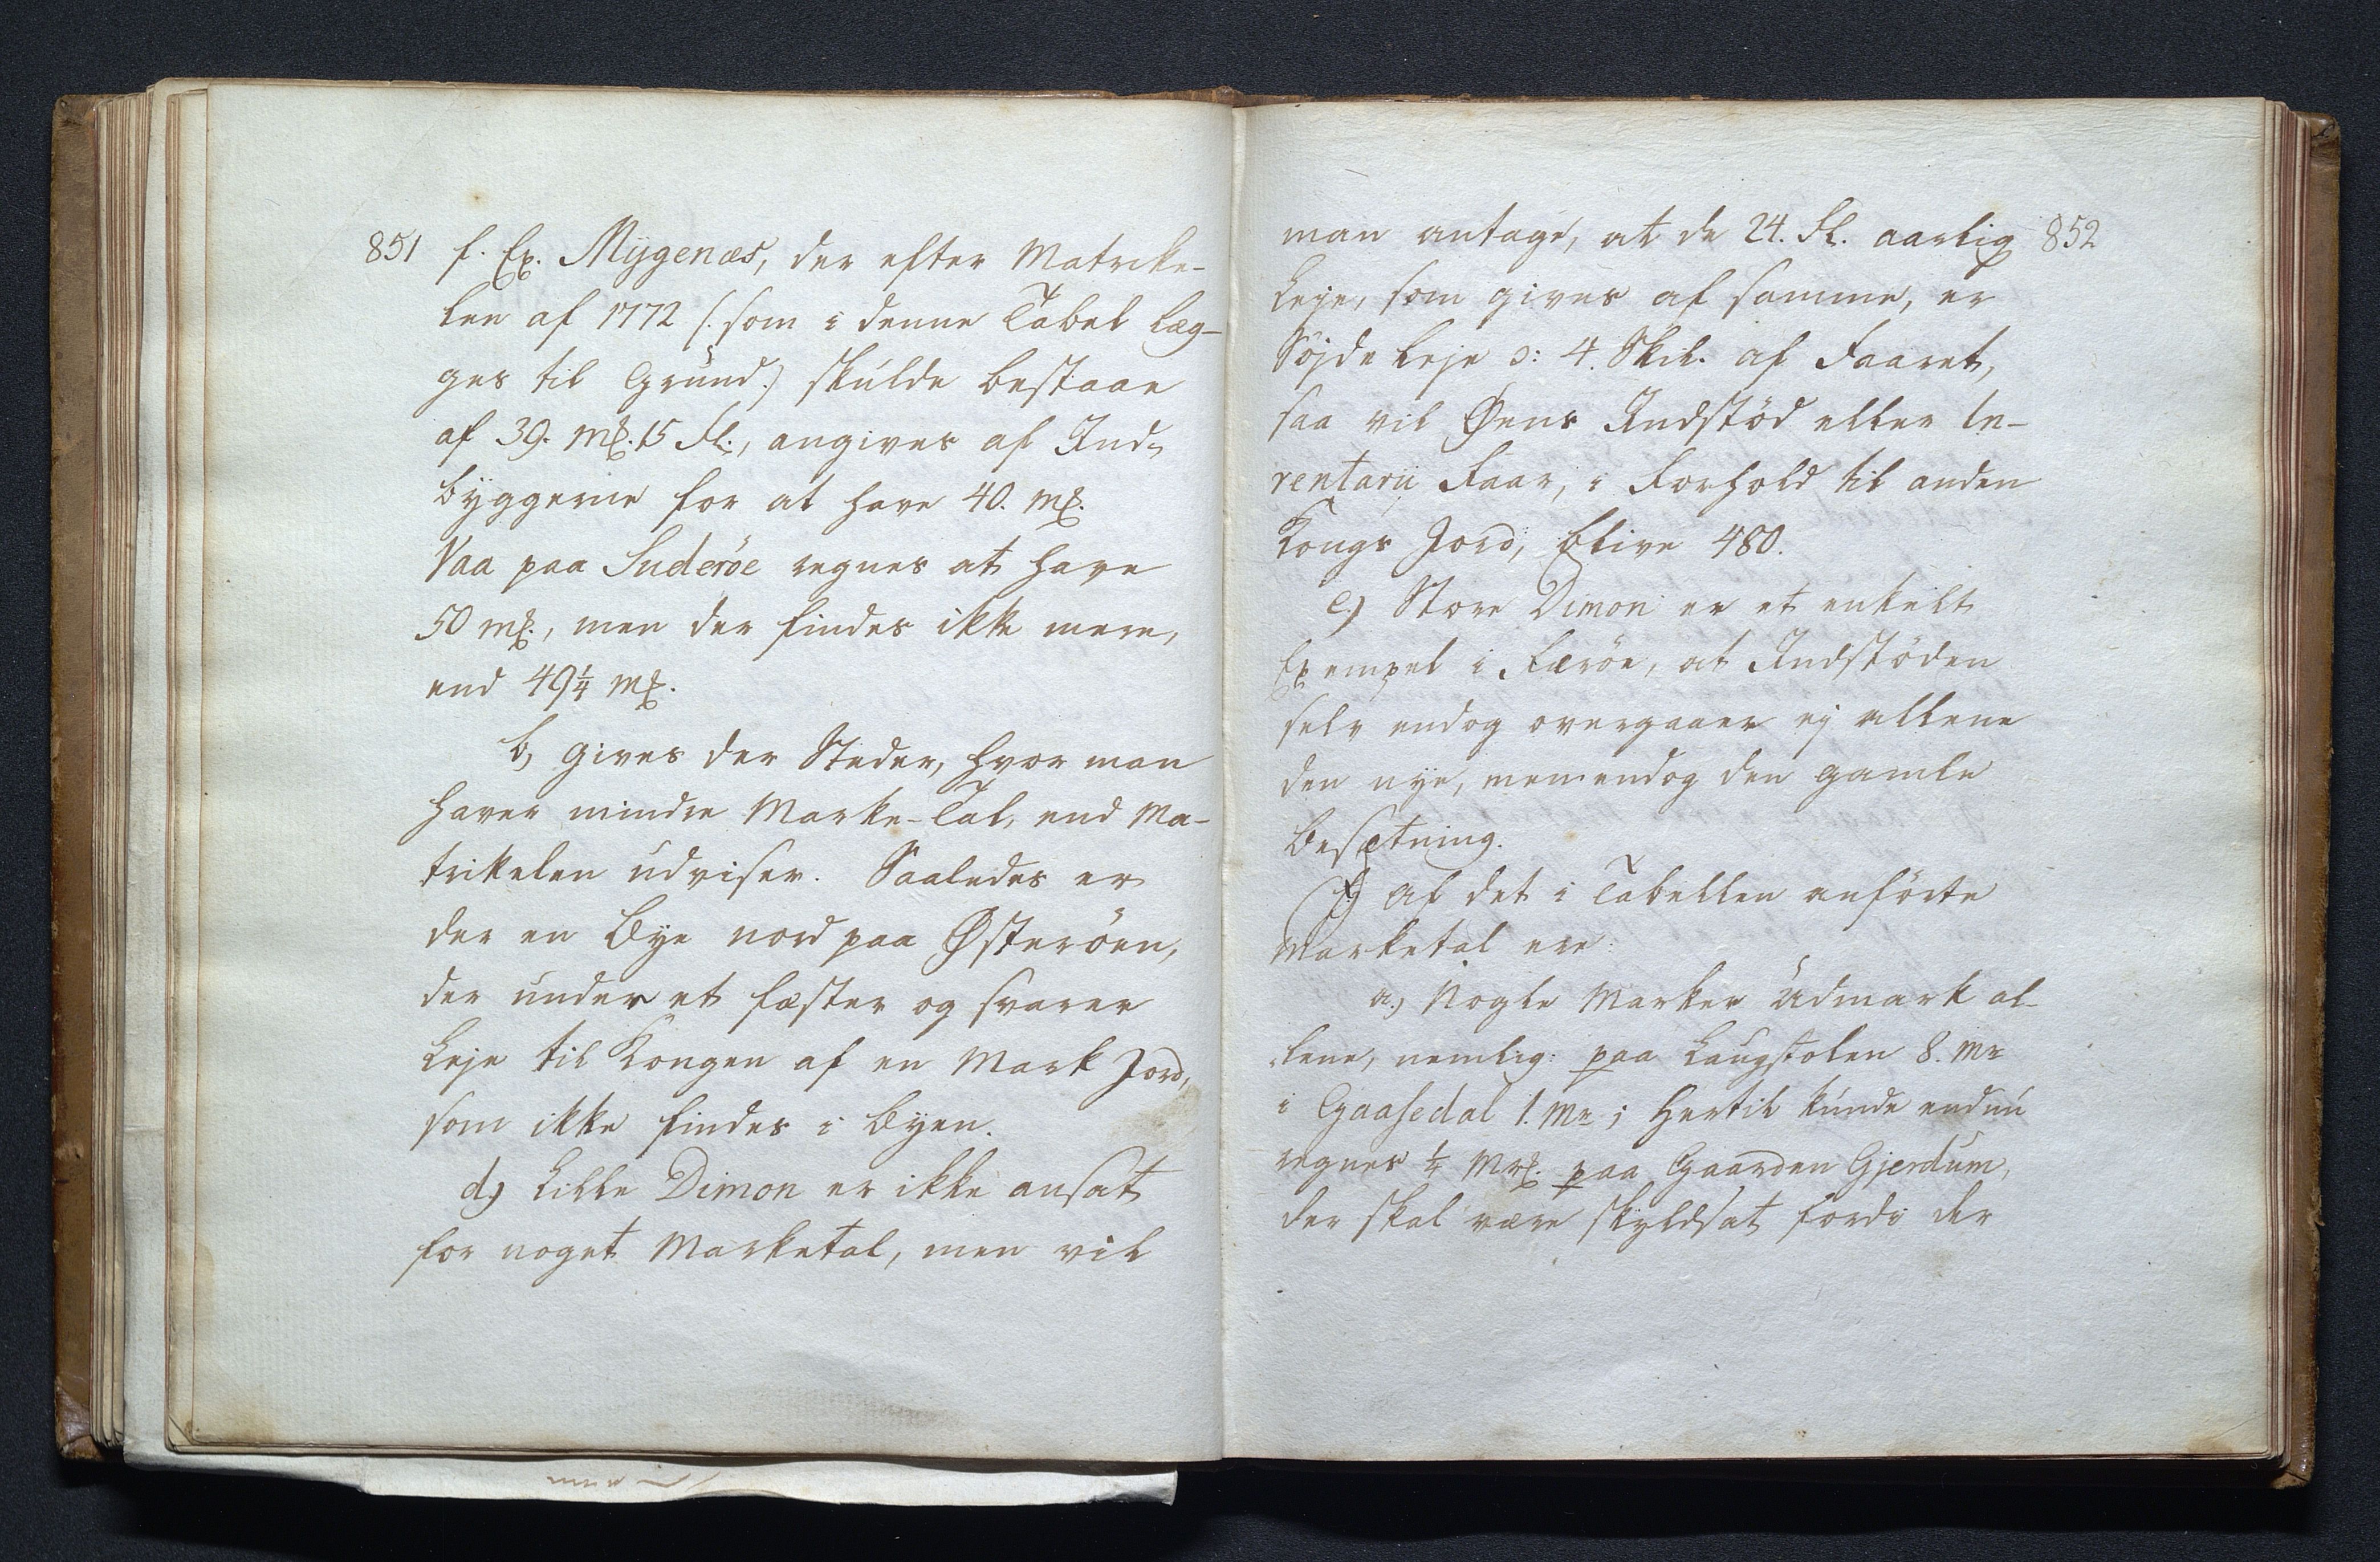 851
f. Ex. Mygenæs, der efter Matrike-
len af 1772 (: som i denne Tabel læg-
ges til Grund:) skulde bestaae
af 39. Mk. 15 Sk., angives af Ind-
byggerne for at have 40. Mk.
Vaa paa Suderöe regnes at have
50 Mk., men der findes ikke mere,
end 49¼ Mk.
b, gives der Steder, hvor man
haver mindre Marke-Tal, end Ma-
trikelen udviser. Saaledes er
der en Bye nord paa Østeröen,
der under et fæster og svarer
Leje til Kongen af en Mark Jord,
som ikke findes i Byen.
d) Lille Dimon er ikke ansat
for noget Marketal, men vil
852
man antage, at de 24. Sk. aarlig
Leje, som gives af samme, er
Söjde Leje ɔ: 4. Skil. af Faaret,
saa vil Øens Indstöd eller In-
ventarii Faar, i Forhold til anden
Kongs Jord, blive 480.
e) Store Dimon er et enkelt
Exempel i Færöe, at Indstöden
selv endog overgaaer ej allene
den nye, men endog den gamle
Besætning.
f) Af det i Tabellen anförte
Marketal ere:
a.) Nogle Marker Udmark al-
lene, nemlig: paa Laugstolen 8. Mr
i Gaasedal 1. Mr; Hertil kunde endnu
regnes ¼ Mrk. paa Gaarden Gjerdum,
der skal være skyldsat fordi der